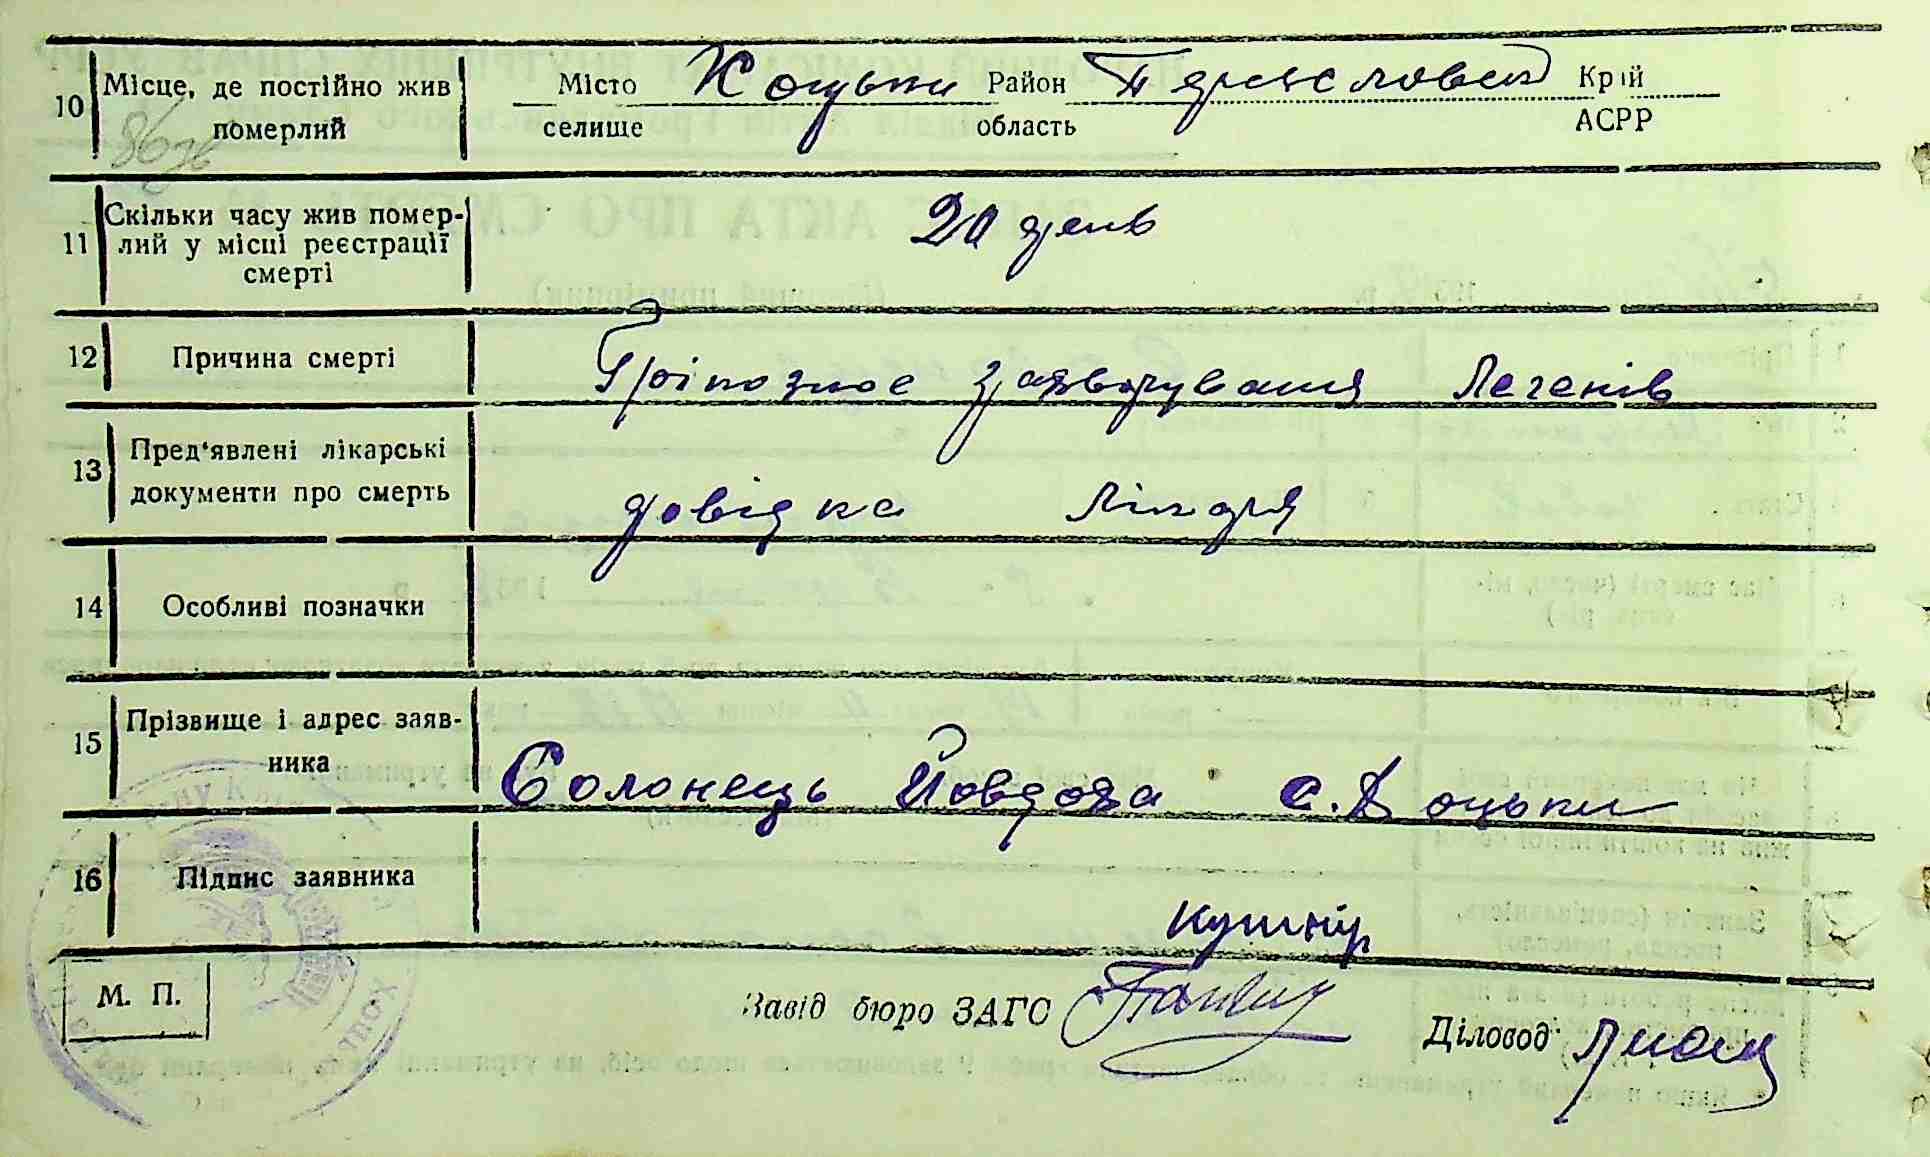 10 Місце, де постійно жив померлий
Місто селище Коцьки Район область Переяславський Край АСРР
11 Скільки часу жив помер-
лий у місці реєстрації
смерті
20 день
12 Причина смерті Гріпозное захворування Легенів
13 Пред'явлені лікарські
документи про смерть
довідка Лікаря
14 Особливі позначки
15 Прізвище і адрес заяв-
ника
Солонець Йовдоха с. Коцьки
16 Підпис заявника
Кушнір
М. П.
Завід бюро ЗАГС
Діловод